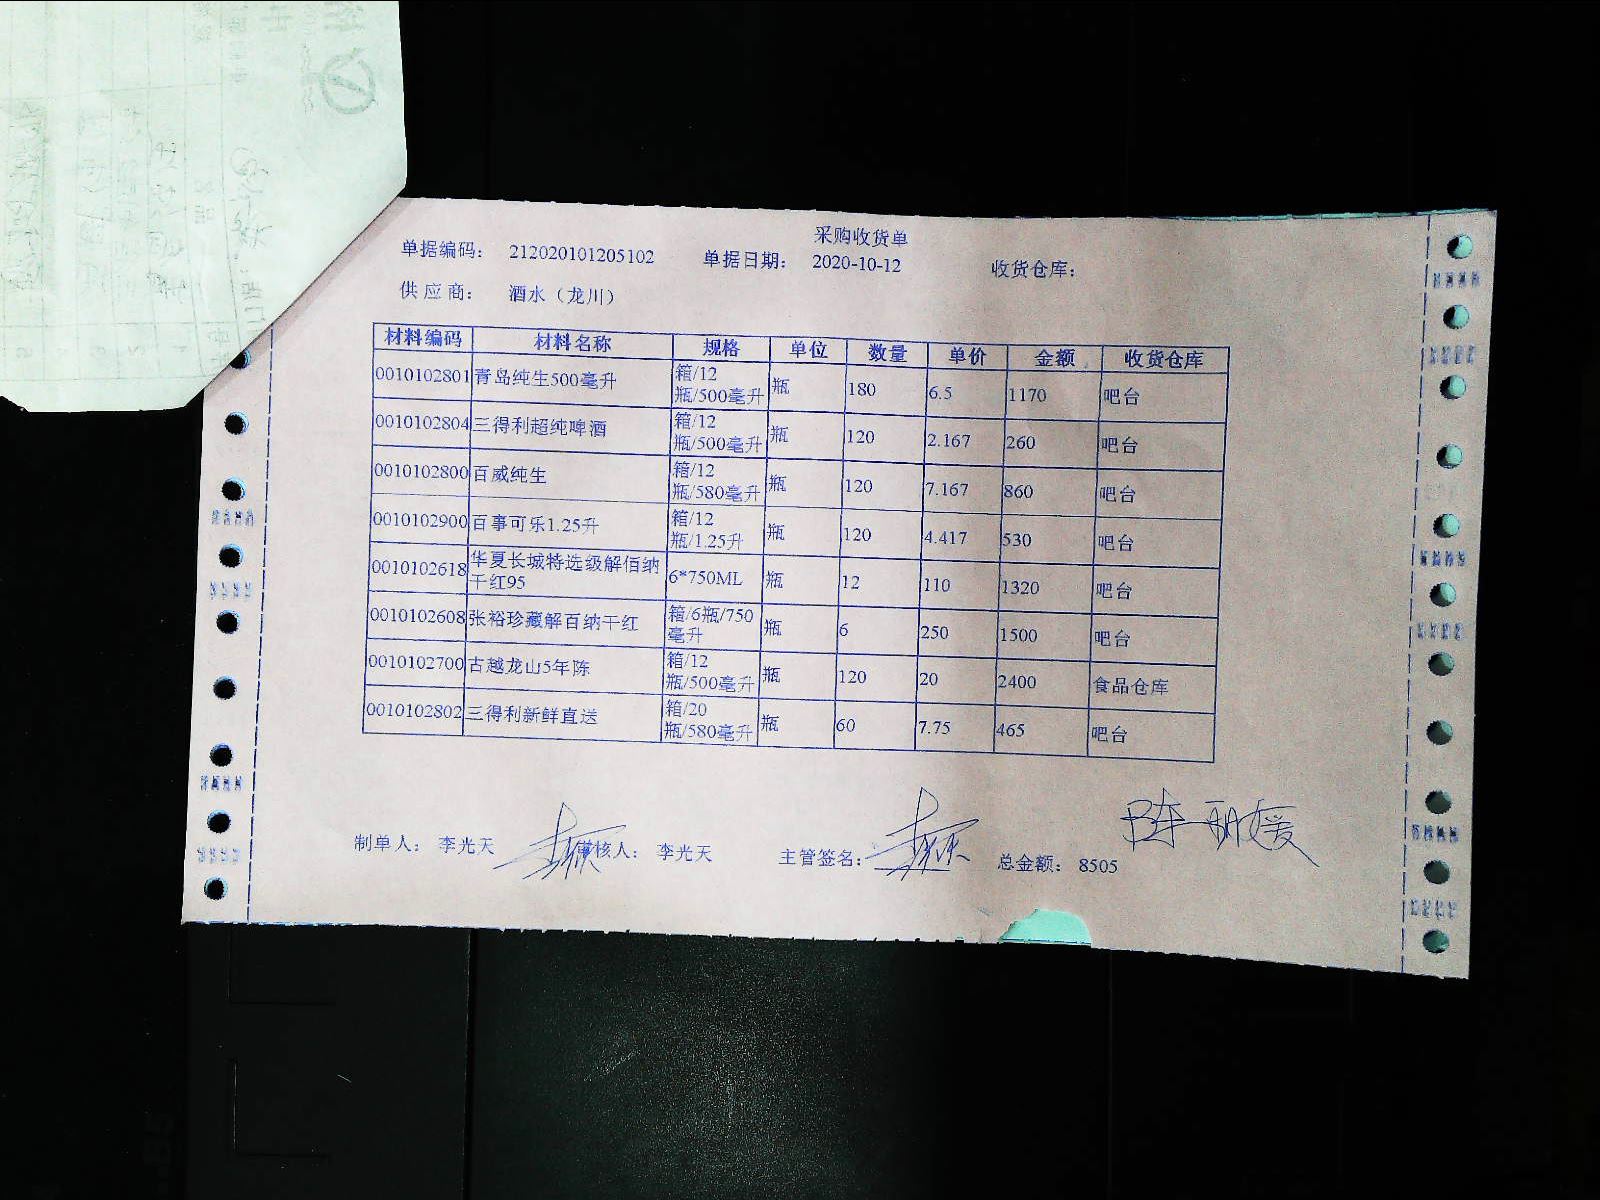 采购收货单
单据编码： 212020101205102 单据日期： 2020-10-12 收货仓库：
供 应 商： 酒水（龙川）
材料编码 材料名称 规格 单位 数量 单价 金额 收货仓库
0010102801 青岛纯生500毫升 箱/12瓶/500毫升 瓶 180 6.5 1170 吧台
0010102804 三得利超纯啤酒 箱/12瓶/500毫升 瓶 120 2.167 260 吧台
0010102800 百威纯生 箱/12瓶/580毫升 瓶 120 7.167 860 吧台
0010102900 百事可乐1.25升 箱/12瓶/1.25升 瓶 120 4.417 530 吧台
0010102618 华夏长城特选级解佰纳干红95 6*750ML 瓶 12 110 1320 吧台
0010102608 张裕珍藏解百纳干红 箱/6瓶/750毫升 瓶 6 250 1500 吧台
0010102700 古越龙山5年陈 箱/12瓶/500毫升 瓶 120 20 2400 食品仓库
0010102802 三得利新鲜直送 箱/20瓶/580毫升 瓶 60 7.75 465 吧台
制单人： 李光天 审核人： 李光天 主管签名： 总金额： 8505